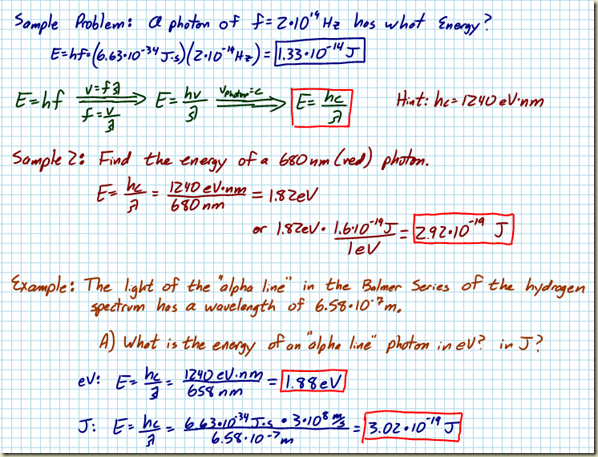 Sample Problem: A photon of f = 2·10¹⁹ Hz has what Energy?
E=hf=(6.63·10⁻³⁴ J·s)(2·10¹⁹ Hz) = 1.33·10⁻¹⁴ J
E=hf v=fλ f=v/λ E=hv/λ Vphoton=c E=hc/λ Hint: hc=1240 eV·nm
Sample 2: Find the energy of a 680 nm (red) photon.
E=hc/λ = 1240 eV·nm/680 nm = 1.82eV
or 1.82eV · 1.6·10⁻¹⁹J/1eV = 2.92·10⁻¹⁹ J
Example: The light of the "alpha line" in the Balmer Series of the hydrogen
spectrum has a wavelength of 6.58·10⁻⁷m.
A) What is the energy of an "alpha line" photon in eV? in J?
eV: E=hc/λ = 1240 eV·nm/658 nm = 1.88eV
J: E=hc/λ = 6.63·10⁻³⁴ J·s · 3·10⁸ m/s/6.58·10⁻⁷ m = 3.02·10⁻¹⁹ J